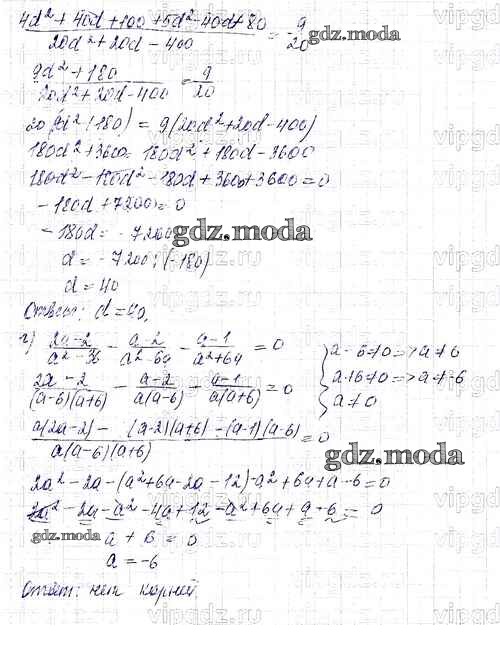 4d² + 40d + 100 + 5d² - 40d + 80 / 20d² + 20d - 400 = 9/20
9d² + 180 / 20d² + 20d - 400 = 9/20
20(9d² + 180) = 9(20d² + 20d - 400)
180d² + 3600 = 180d² + 180d - 3600
180d² - 180d² - 180d + 3600 + 3600 = 0
- 180d + 7200 = 0
- 180d = - 7200
gdz.moda
d = - 7200 : (-180)
d = 40
Ответ: d = 40.
г) 2a - 2 / a² - 36 - a - 2 / a² - 6a - a - 1 / a² + 6a = 0 { a - 6 ≠ 0 => a ≠ 6
2a - 2 / (a-6)(a+6) - a - 2 / a(a-6) - a - 1 / a(a+6) = 0 a + 6 ≠ 0 => a ≠ -6
a ≠ 0
a(2a-2) - (a-2)(a+6) - (a-1)(a-6) / a(a-6)(a+6) = 0
gdz.moda
2a² - 2a - (a² + 6a - 2a - 12) - a² + 6a + a - 6 = 0
2a² - 2a - a² - 4a + 12 - a² + 6a + a - 6 = 0
gdz.moda
a + 6 = 0
a = -6
Ответ: нет корней.
vipgdz.ru